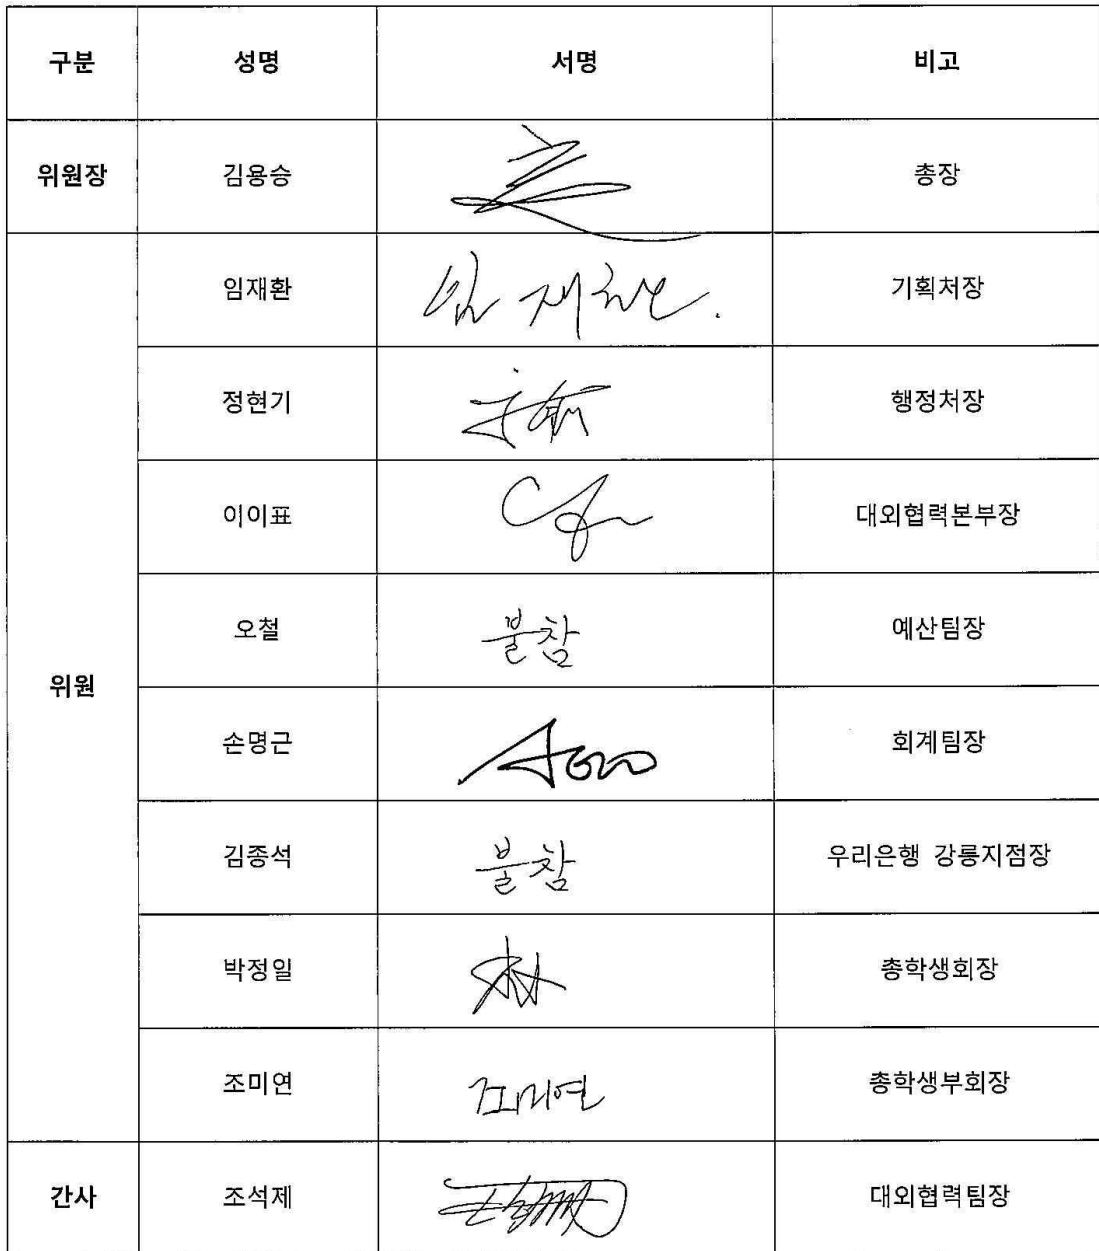 구분 성명 서명 비고
위원장 김용승 총장
임재환 임재환. 기획처장
정현기 행정처장
이이표 대외협력본부장
오철 불참 예산팀장
위원
손명근 회계팀장
김종석 불참 우리은행 강릉지점장
박정일 총학생회장
조미연 조미연 총학생부회장
간사 조석제 대외협력팀장